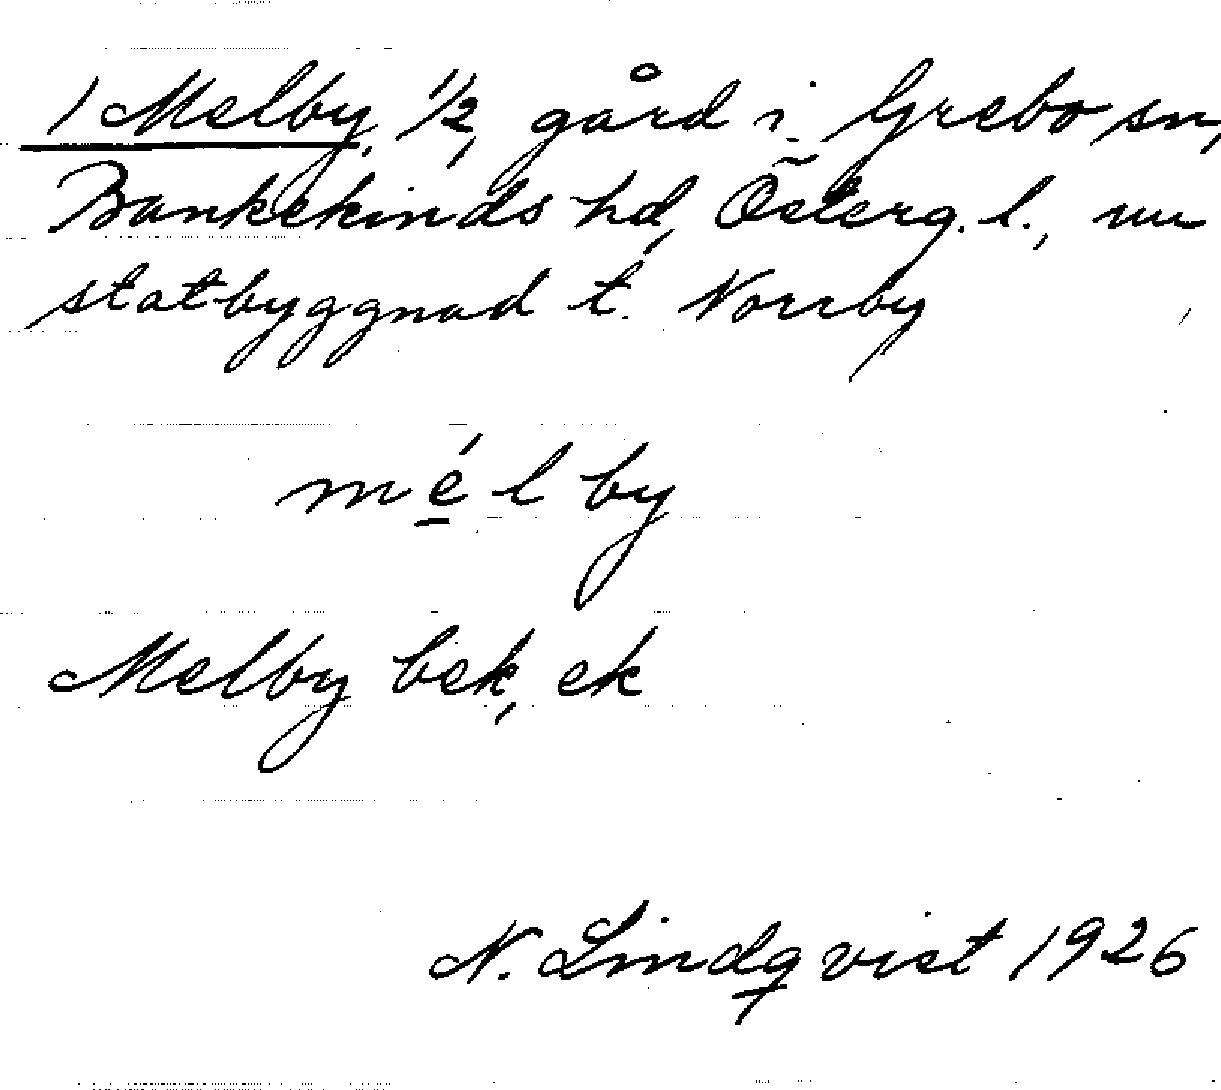 1 Melby, 1/2, gård i Grebo sn,
Bankekinds hd, Österg. l., nu
statbyggnad t. Norrby
mélby
Melby bek, ek
N. Lindqvist 1926